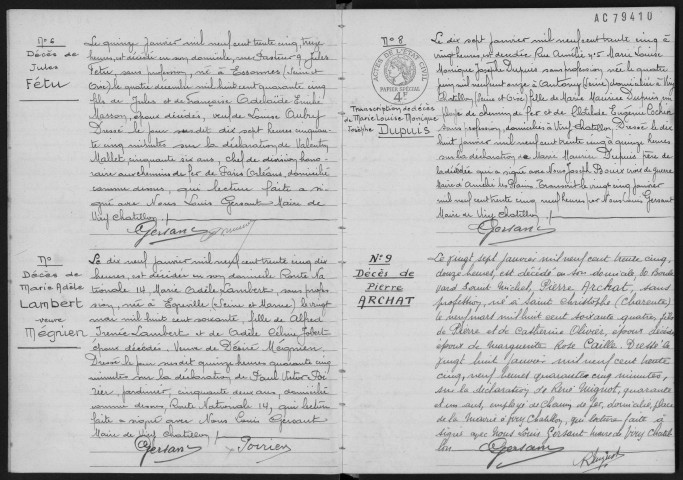 AC79410
No 6
Décès de
Jules
Fétu
Le quinze janvier mil neuf cent trente cinq, treize
heures, est décédé en son domicile, rue Pasteur 9, Jules
Fétu, sans profession, né à Essonnes (Seine et
Oise) le quatre décembre mil huit cent quarante cinq
fils de Jules et de Françoise Adélaïde Emilie
Masson, époux décédés, veuf de Louise
Dressé le jour susdit dix sept heures cinquan-
te cinq minutes sur la déclaration de Valentin
Mallet, cinquante six ans, chef de division hono-
raire aux chemins de fer de Paris Orléans, domicilié
comme dessus, qui lecture faite a si-
gné avec Nous Louis Gersant Maire de
Viry Chatillon
Gersant
No
Décès de
Marie Adèle
Lambert
veuve
Mégnien
Le dix neuf janvier mil neuf cent trente cinq dix
heures, est décédée en son domicile Route Na-
tionale 14, Marie Adèle Lambert, sans profes-
sion, née à (Seine et Marne) le vingt
mai mil huit cent soixante, fille de Alfred
Irénée Lambert et de Adèle Céline Jobert
époux décédés. Veuve de Désiré Mégnien.
Dressé le jour susdit quinze heures quarante cinq
minutes sur la déclaration de Paul Victor Poi-
rier, jardinier, cinquante deux ans, domicilié
comme dessus, Route Nationale 14, qui lecture
faite a signé avec Nous Louis Gersant
Maire de Viry Chatillon
Gersant
No 8
ACTES DE L'ETAT CIVIL
PAPIER SPECIAL
4F
Transcription de décès
de Marie Louise Monique
Josèphe Dupuis
Le dix sept janvier mil neuf cent trente cinq à
vingt heures, est décédée Rue Amélie 45 Marie Louise
Monique Josèphe Dupuis sans profession, née le quatre
juin mil neuf cent onze à Antony (Seine) domiciliée à Viry
Chatillon (Seine et Oise) fille de Marie Maurice Dupuis em-
ployé de chemin de fer et de Clotilde Eugénie Cocheu
sans profession, domiciliés à Viry Chatillon. Dressé le dix
huit janvier mil neuf cent trente cinq à quinze heures
sur la déclaration de Marie Maurice Dupuis père de
la décédée qui a signé avec Nous Joseph
Transcrit le vingt cinq janvier
mil neuf cent trente cinq neuf heures par Nous Louis Gersant
Maire de Viry Chatillon
Gersant
No 9
Décès de
Pierre
ARCHAT
Le vingt sept janvier mil neuf cent trente cinq,
douze heures, est décédé en son domicile, 10 Boule-
vard Saint Michel, Pierre Archat, sans
profession, né à Saint Christophe (Charente)
le neuf août mil huit cent soixante quatre, fils
de Pierre et de Catherine Olivier, époux décédés
époux de Marguerite Rose Caille. Dressé le
vingt huit janvier mil neuf cent trente
cinq, neuf heures quarante cinq minutes,
sur la déclaration de René Mignot, quarante
et un ans, employé de chemin de fer, domicilié, place
de la Mairie à Viry Chatillon, qui lecture faite a
signé avec Nous Louis Gersant maire de Viry Chatil-
lon
Gersant